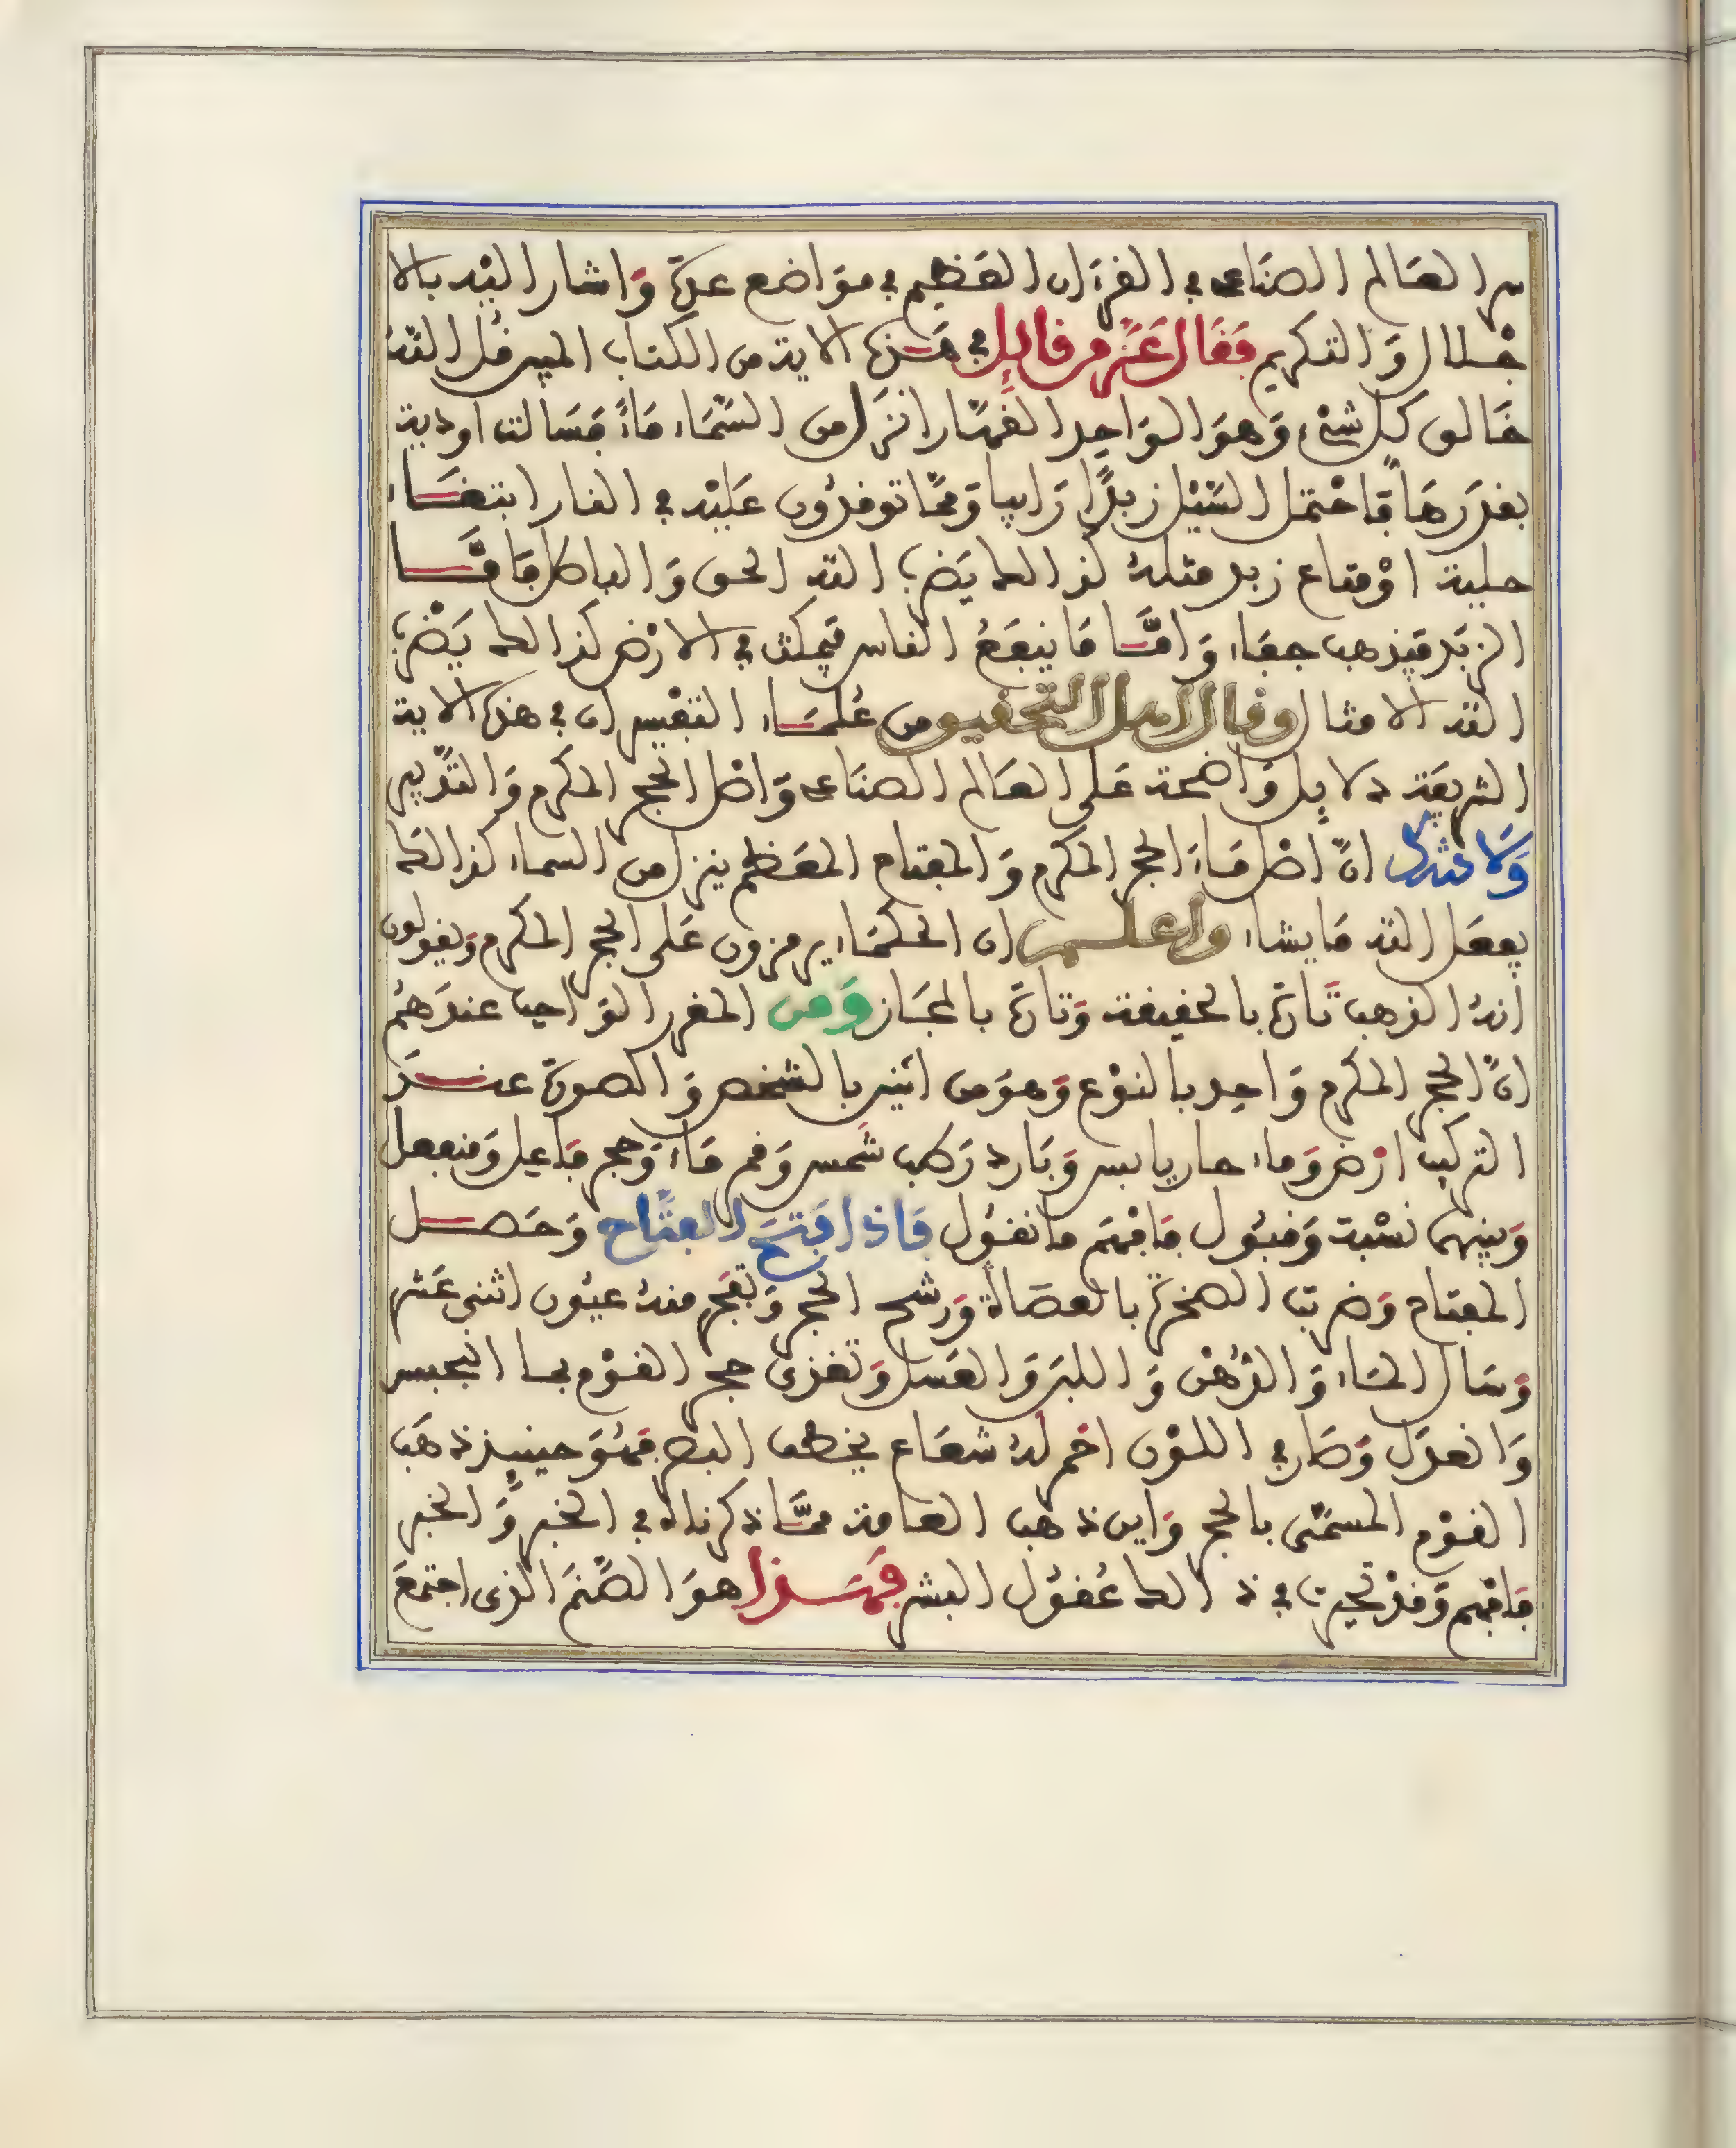 سر العَالم الصنَاعى في القرءَان العَظيم في موَاضع عدة وَاشار اليْه بالا
جْلال وَالتكريم فَقَال عَزّ من قائِل في هَذه الاية من الكتاب المبين قُل اللّه
خَالق كل شيْء وَهوَ الوَاحِد القَهّار انزَل من السّمَاء مَاءً فَسَالت اودية
بقدَرهَا فَاحْتمل السّيْل زبدًا رَابيا وَممّا توقدُون عَليْه في النار ابتغَاء
حلية اوْ متاع زبد مثلهُ كذالك يَضرب اللّه الحق وَالباطل فَامَّا
الزبَد فيَذهب جفَاء وَامَّا مَا ينفَعُ الناس فيَمكث في الارْض كذالك يَضْرب
اللّه الامثال وقال اهل التحقيق من عُلمَاء التفْسير ان في هذه الاية
الشريفَة دلائِل وَاضحة عَلى العَالم الصنَاعى وَاصْل الحجر المكرم وَالتدْبير
وَلا شك انّ اصْل مَاء الحجر المكرم وَالمفتاح المعَظم ينزل من السماء كذالك
يفعَل اللّه مَا يشاء واعلم ان الحكمَاء يرمزون عَلى الحجر المكرم وَيقولون
انهُ الذهب تَارة بالحقيقة وَتارة بالمجَاز وَمن المقرر الوَاجب عندَهُم
انّ الحجر المكرم وَاحِد بالنوْع وَهوَ من اثنين بالشخص وَالصورة عندَ
التركيب ارْض وَماء حار يابس وَبَارد رَطب شَمس وَقمر مَاء وَحجر فَاعِل وَمنفعل
وَبينهما نسْبة وَقبُول فَافْهَم مَا نقُول فَاذا فَتحَ الفتّاح وَحَصل
المفتاح وَضربت الصخرة بالعصَاة وَرشح الحجر وَتفَجر منهُ عيُون اثنى عَشر
وَسَال المَاء وَالدّهْن وَاللبن وَالعَسل وَتغذى حجر القوْم بما انبجس
وَانعدَل وَصَار في اللوْن احمر لهُ شعَاع يخطف البصر فَهُوَ حينئِذ ذهَب
القوْم المسَمّى بالحجر وَاين ذهب العامة ممَّا ذكرناه في الخبر وَالخبر
فَافْهم وَقدْ تحيرت في ذالك عُقُول البشر فَهَذا هوَ الصّنَم الذى اجتمعَ